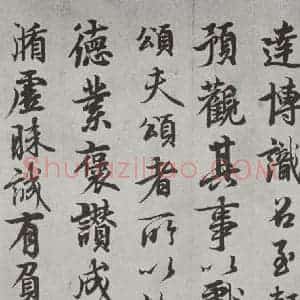 達博識召至軒
預觀其事以獻
頌夫頌者所以
德業褒讚成
循虛昧誠有負
Shufaziliao.COM